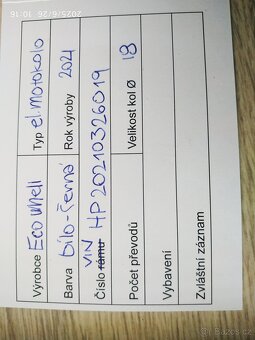 Výrobce Eco wheli Typ el. motokolo
Barva bílo-černá Rok výroby 2021
VIN
Číslo rámu HP20210326019
Počet převodů Velikost kol Ø 18
Vybavení
Zvláštní záznam
2025/6/26 10:16
bazos.cz